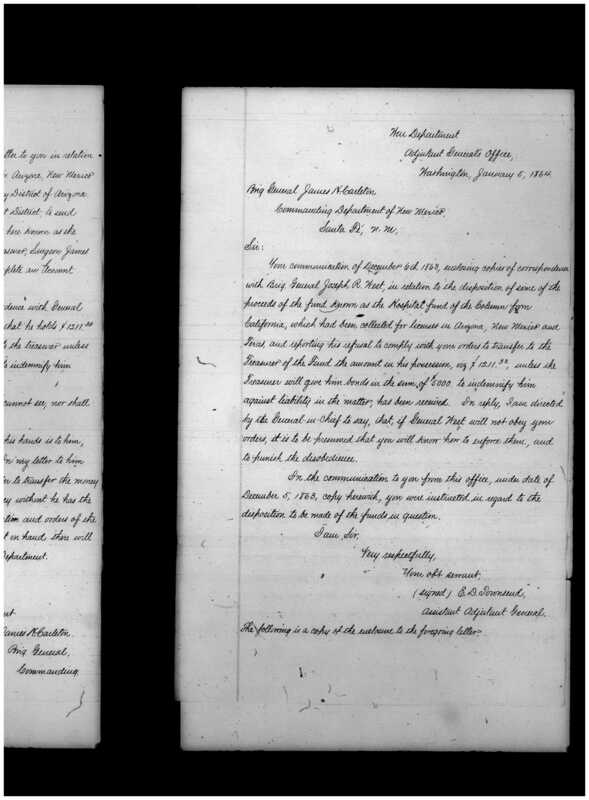 tter to you in relation
Arizona, New Mexico
y District of Arizona
t District, to send
here known as the
easurer, Surgeon James
plete an account
dence with General
that he holds $1211.
the Treasurer unless
to indemnify him
cannot see, nor shall
his hands is to him,
In my letter to him
to transfer the money
ey without he has the
tion and orders of the
t on hand there will
Department.
James H. Carleton.
Brig General,
Commanding.
War Department
Adjutant General's Office,
Washington, January 5, 1864.
Brig General James H. Carleton
Commanding Department of New Mexico,
Santa Fé, N. M.,
Sir:
Your communication of December 6th 1863, enclosing copies of correspondence
with Brig General Joseph R. West, in relation to the disposition of some of the
proceeds of the fund known as the Hospital fund of the Column from
California, which had been collected for licenses in Arizona, New Mexico and
Texas, and reporting his refusal to comply with your orders to transfer to the
Treasurer of the Fund the amount in his possession, viz $1211. unless the
Treasurer will give him bonds in the sum of $5000 to indemnify him
against liability in the matter, has been received. In reply, I am directed
by the General-in-Chief to say, that, if General West will not obey your
orders, it is to be presumed that you will know how to enforce them, and
to punish the disobedience.
In the communication to you from this office, under date of
December 5, 1863, copy herewith, you were instructed in regard to the
disposition to be made of the funds in question.
I am Sir,
Very respectfully,
Your obt servant,
(signed) E. D. Townsend,
Assistant Adjutant General.
The following is a copy of the enclosure to the foregoing letter: